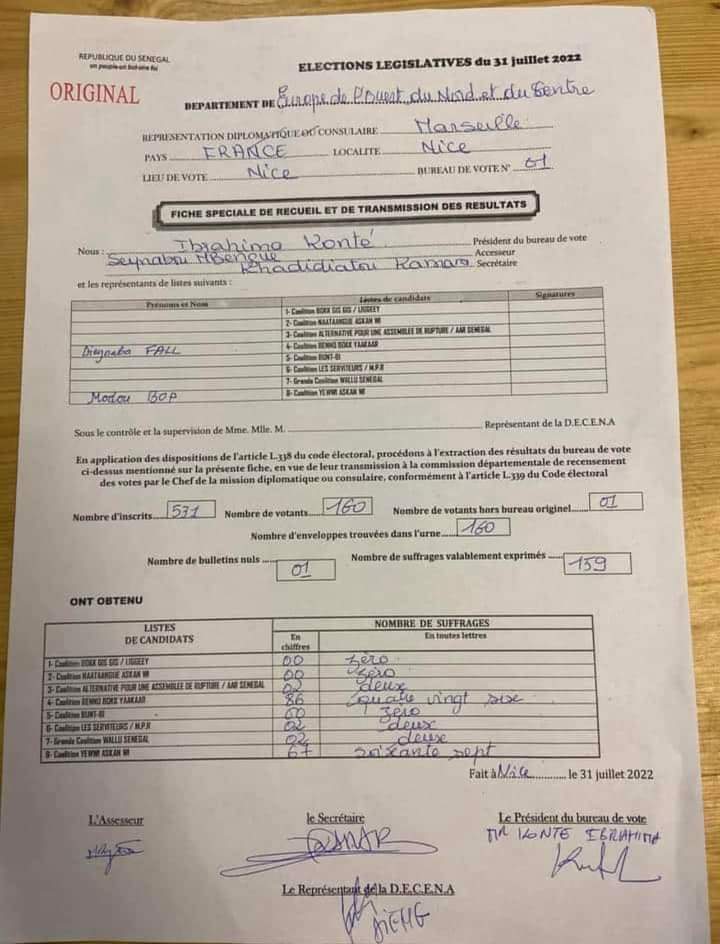 REPUBLIQUE DU SENEGAL
un peuple-un but-une foi
ORIGINAL
ELECTIONS LEGISLATIVES du 31 juillet 2022
DEPARTEMENT DE Europe de l'Ouest, du Nord et du Centre
REPRESENTATION DIPLOMATIQUE OU CONSULAIRE Marseille
PAYS FRANCE LOCALITE Nice
LIEU DE VOTE Nice BUREAU DE VOTE N° 01
FICHE SPECIALE DE RECUEIL ET DE TRANSMISSION DES RESULTATS
Nous : Ibrahima Konté Président du bureau de vote
Seynabou MBengue Accesseur
Khadidiatou Kamara Secrétaire
et les représentants de listes suivants :
Prénoms et Nom Listes de candidats Signatures
1- Coalition BOKK GIS GIS / LIGGEEY
2- Coalition NAATAANGUE ASKAN WI
3- Coalition ALTERNATIVE POUR UNE ASSEMBLEE DE RUPTURE / AAR SENEGAL
Dieynaba FALL 4- Coalition BENNO BOKK YAAKAAR
5- Coalition BUNT-BI
6- Coalition LES SERVITEURS / M.P.R
7- Grande Coalition WALLU SENEGAL
Modou BOP 8- Coalition YEWWI ASKAN WI
Sous le contrôle et la supervision de Mme. Mlle. M. Représentant de la D.E.C.E.N.A
En application des dispositions de l'article L.338 du code électoral, procédons à l'extraction des résultats du bureau de vote
ci-dessus mentionné sur la présente fiche, en vue de leur transmission à la commission départementale de recensement
des votes par le Chef de la mission diplomatique ou consulaire, conformément à l'article L.339 du Code électoral
Nombre d'inscrits 531 Nombre de votants 160 Nombre de votants hors bureau originel 01
Nombre d'enveloppes trouvées dans l'urne 160
Nombre de bulletins nuls 01 Nombre de suffrages valablement exprimés 159
ONT OBTENU
LISTES DE CANDIDATS NOMBRE DE SUFFRAGES
En chiffres En toutes lettres
1- Coalition BOKK GIS GIS / LIGGEEY 00 zéro
2- Coalition NAATAANGUE ASKAN WI 00 zéro
3- Coalition ALTERNATIVE POUR UNE ASSEMBLEE DE RUPTURE / AAR SENEGAL 02 deux
4- Coalition BENNO BOKK YAAKAAR 86 quatre vingt six
5- Coalition BUNT-BI 00 zéro
6- Coalition LES SERVITEURS / M.P.R 02 deux
7- Grande Coalition WALLU SENEGAL 02 deux
8- Coalition YEWWI ASKAN WI 67 soixante sept
Fait à Nice le 31 juillet 2022
L'Assesseur le Secrétaire Le Président du bureau de vote
Mr KONTE IBRAHIMA
Le Représentant de la D.E.C.E.N.A